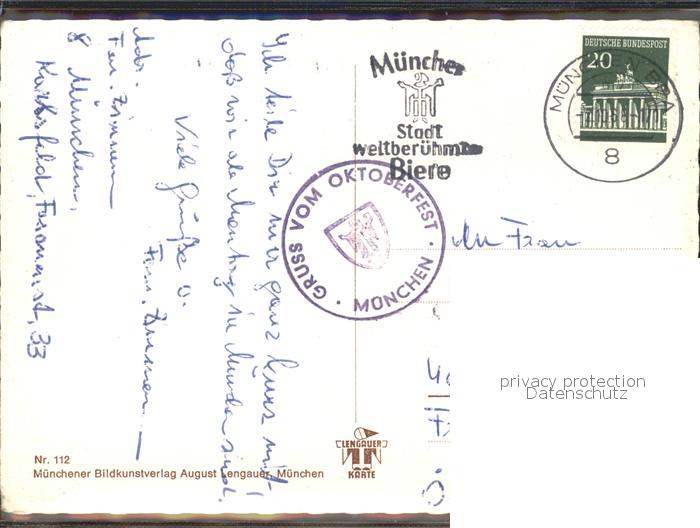 Ich teile Dir nur ganz kurz mit!
daß wir ab Montag in München sind.
Viele Grüße u.
Fam. Zimmer
Adr.
Fam. Zimmer
8 München,
33
München
Stadt
weltberühmter
Biere
DEUTSCHE BUNDESPOST
20
MÜNCHEN BPA
8
GRUSS VOM OKTOBERFEST · MÜNCHEN ·
An Frau
privacy protection
Datenschutz
Nr. 112
Münchener Bildkunstverlag August Lengauer, München
LENGAUER
KARTE